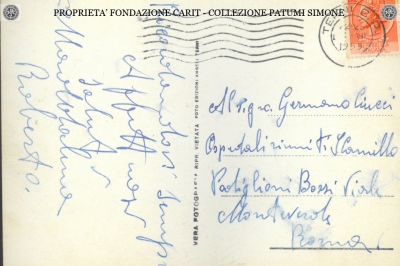 PROPRIETA' FONDAZIONE CARIT - COLLEZIONE PATUMI SIMONE
Ricordandoti sempre
Affettuosi
Saluti
Maddalena
Roberto.
VERA FOTOGRAFIA RIPR. VIETATA
TERNI
Al Sig.ra Germano Ciucci
Ospedali riuniti F. Camillo
Padiglioni Bassi Viale
Monteverde
Roma